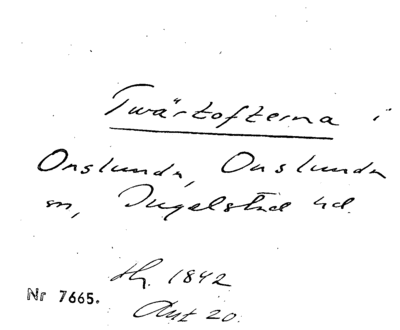 Twärtofterna i
Onslunda, Onslunda
sn, Ingelstad hd.
Hg. 1842
Nr 7665.
Akt 20.